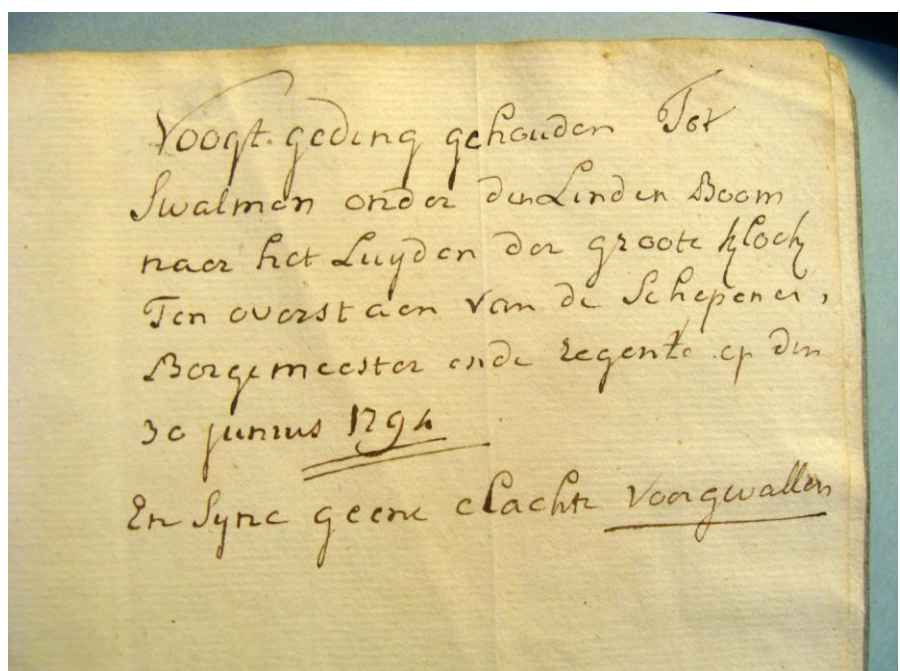 Voogt geding gehouden Tot
Swalmen onder den Linden Boom
naer het Luyden der groote klock
Ten overstaen van de Schepenen,
Borgemeester ende regente op den
30 junius 1794
En Syne geene clachte voorgevallen